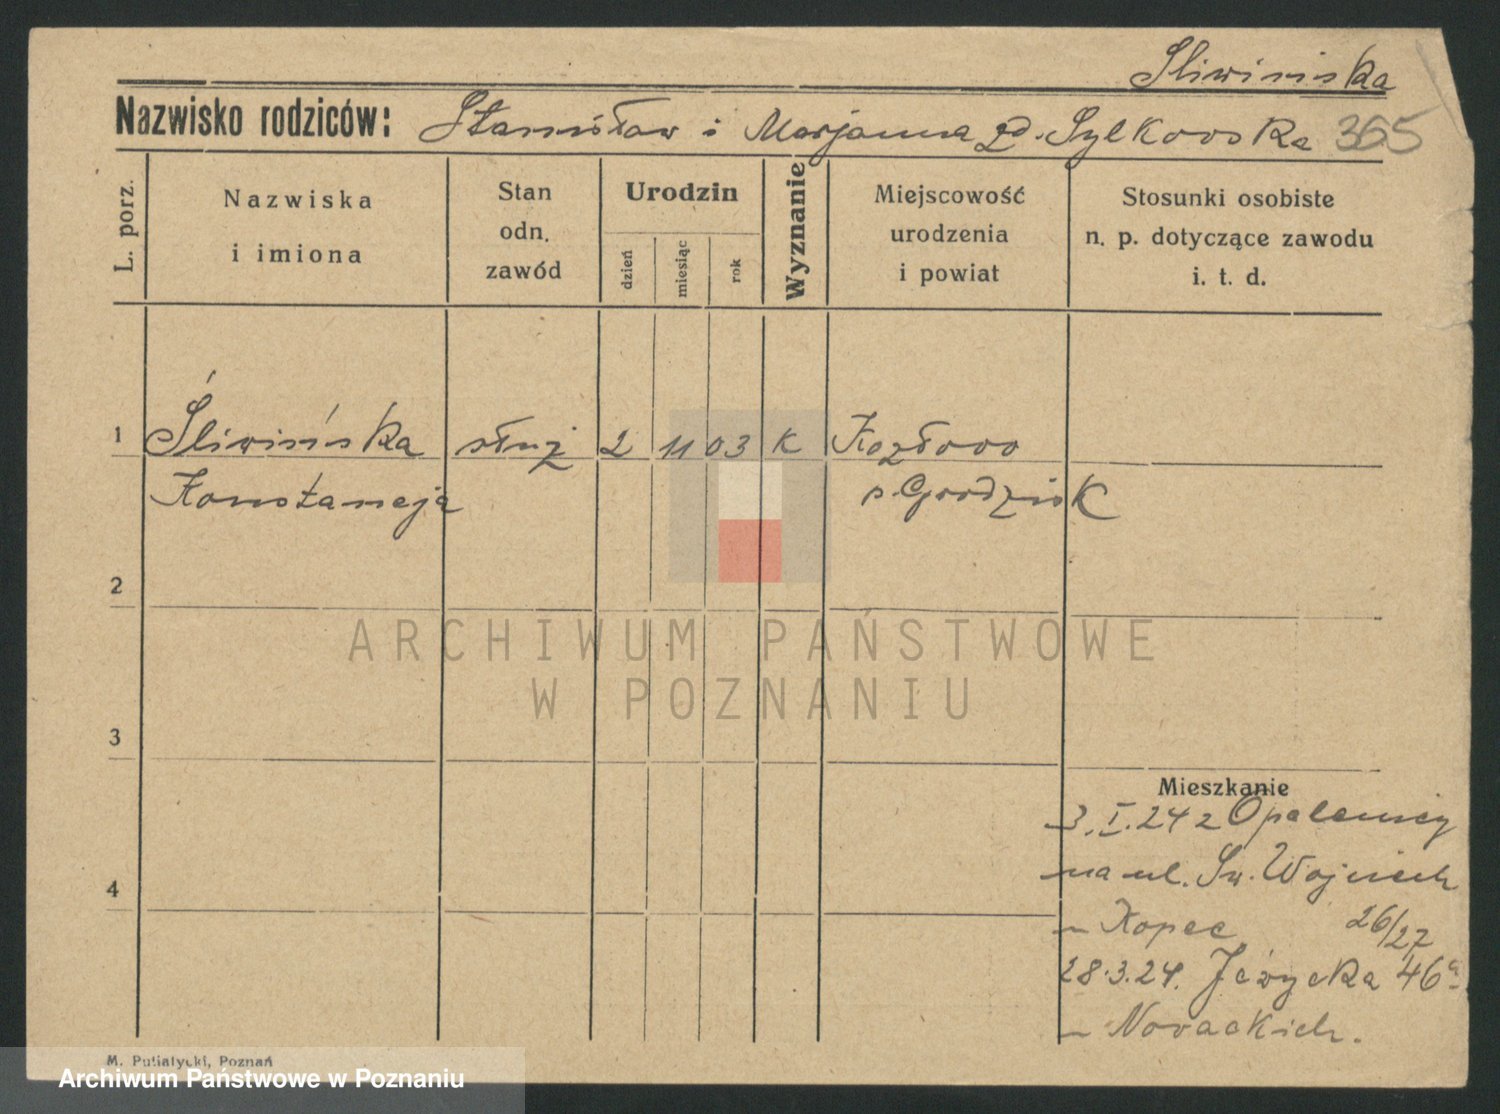 Śliwińska
Nazwisko rodziców: Stanisław i Marjanna zd. Sylkowska 365
L. porz.
Nazwiska
i imiona
Stan
odn.
zawód
Urodzin
dzień
miesiąc
rok
Wyznanie
Miejscowość
urodzenia
i powiat
Stosunki osobiste
n. p. dotyczące zawodu
i. t. d.
1 Śliwińska służ 2 11 03 K Kozłowo
Konstancja p. Grodzisk
2
3
4
Mieszkanie
3.I.24 z Opalenicy
na ul. Św. Wojciech
u Kopec 26/27
28.3.24. Jeżycka 46a
u Nowackich.
M. Putiatycki, Poznań
ARCHIWUM PAŃSTWOWE
W POZNANIU
Archiwum Państwowe w Poznaniu